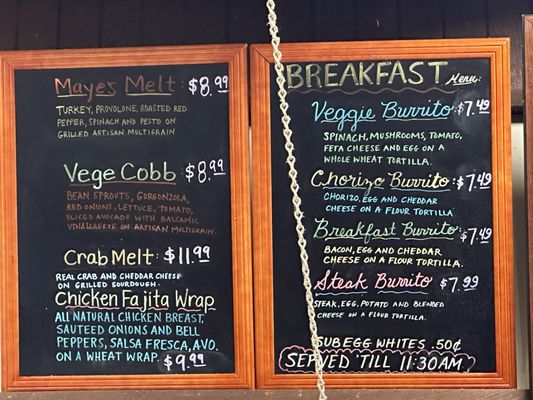 Maye's Melt : $8.99
Turkey, Provolone, Roasted Red
Pepper, Spinach and Pesto on
Grilled Artisan Multigrain
Vege Cobb : $8.99
Bean Sprouts, Gorgonzola,
Red Onions, Lettuce, Tomato,
Sliced Avocado with Balsamic
on Artisan Multigrain.
Crab Melt : $11.99
Real Crab and Cheddar Cheese
on Grilled Sourdough.
Chicken Fajita Wrap
All Natural Chicken Breast,
Sauteed Onions and Bell
Peppers, Salsa Fresca, Avo.
on a Wheat Wrap. $9.99
BREAKFAST Menu
Veggie Burrito : $7.49
Spinach, Mushrooms, Tomato,
Feta Cheese and Egg on a
Whole Wheat Tortilla.
Chorizo Burrito : $7.49
Chorizo, Egg and Cheddar
Cheese on a Flour Tortilla.
Breakfast Burrito : $7.49
Bacon, Egg and Cheddar
Cheese on a Flour Tortilla.
Steak Burrito : $7.99
Steak, Egg, Potato and Blended
Cheese on a Flour Tortilla.
Sub Egg Whites .50¢
Served 'Til 11:30AM